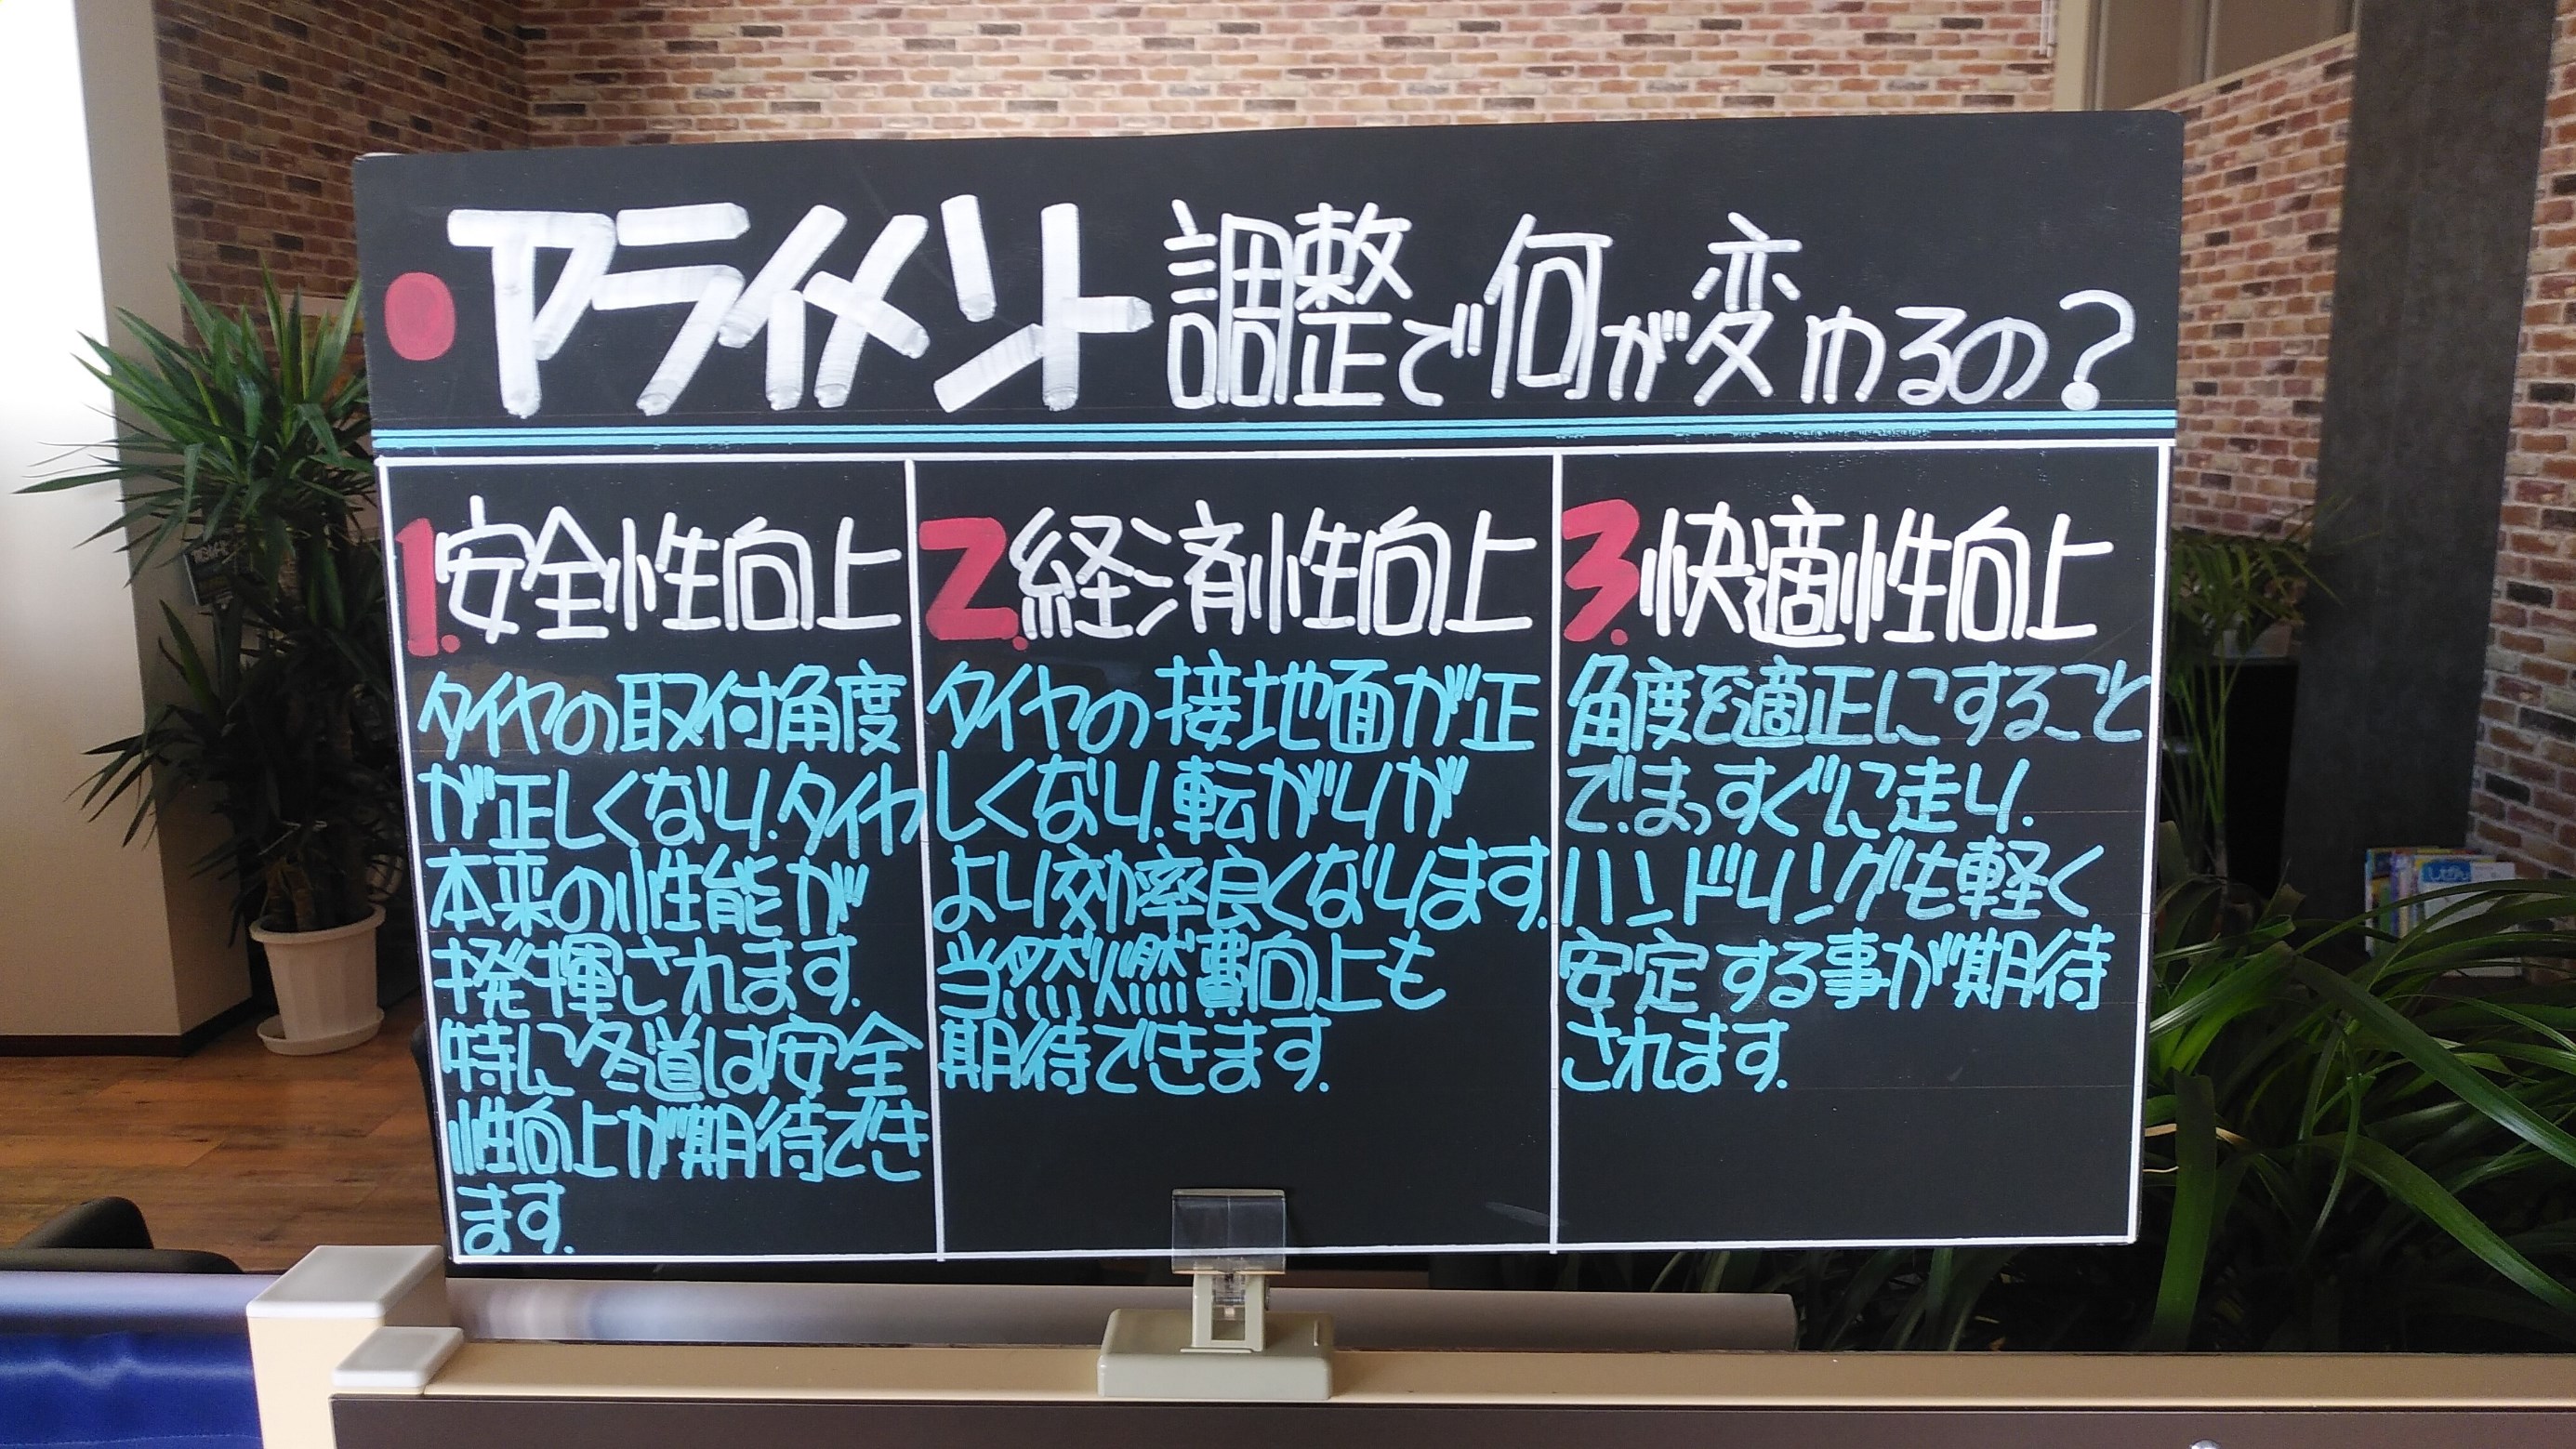 アライメント調整で何が変わるの?
1.安全性向上
タイヤの取付角度
が正しくなり、タイヤ
本来の性能が
発揮されます。
特に冬道は安全
性向上が期待でき
ます。
2.経済性向上
タイヤの接地面が正
しくなり、転がりが
より効率良くなります。
当然燃費向上も
期待できます。
3.快適性向上
角度を適正にすること
で、まっすぐに走り、
ハンドリングも軽く
安定する事が期待
されます。